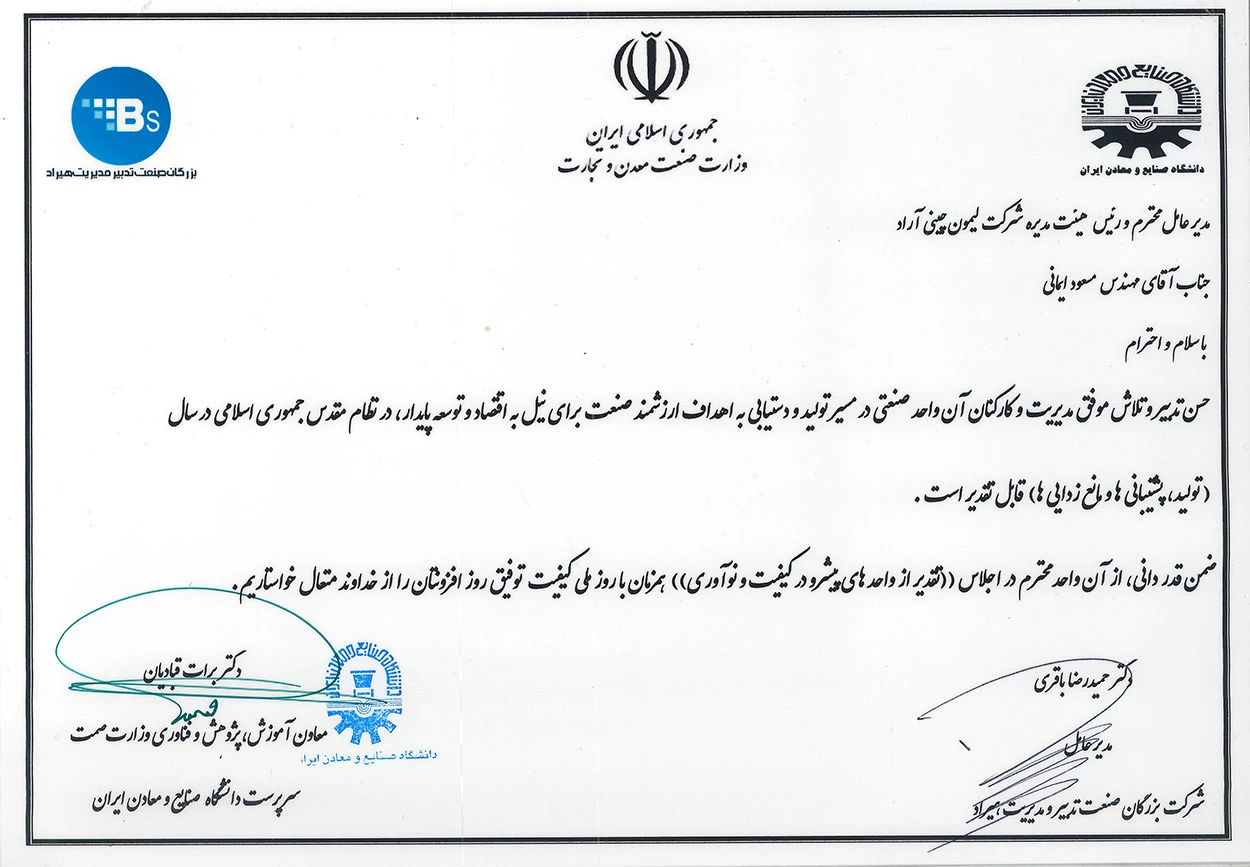 دانشگاه صنایع و معادن ایران
دانشگاه صنایع و معادن ایران
جمهوری اسلامی ایران
وزارت صنعت معدن و تجارت
Bs
بزرگان صنعت تدبیر مدیریت هیراد
مدیر عامل محترم و رئیس هیئت مدیره شرکت لیمون چینی آراد
جناب آقای مهندس مسعود ایمانی
با سلام و احترام
حسن تدبیر و تلاش موفق مدیریت و کارکنان آن واحد صنعتی در مسیر تولید و دستیابی به اهداف ارزشمند صنعت برای نیل به اقتصاد و توسعه پایدار، در نظام مقدس جمهوری اسلامی در سال
(تولید، پشتیبانی ها و مانع زدایی ها) قابل تقدیر است .
ضمن قدر دانی، از آن واحد محترم در اجلاس ((تقدیر از واحد های پیشرو در کیفیت و نوآوری)) همزمان با روز ملی کیفیت توفیق روز افزونتان را از خداوند متعال خواستاریم .
دکتر حمیدرضا باقری
مدیر عامل
شرکت بزرگان صنعت تدبیر و مدیریت هیراد
دکتر برات قبادیان
معاون آموزش، پژوهش و فناوری وزارت صمت
سرپرست دانشگاه صنایع و معادن ایران
دانشگاه صنایع و معادن ایران
دانشگاه صنایع و معادن ایرا